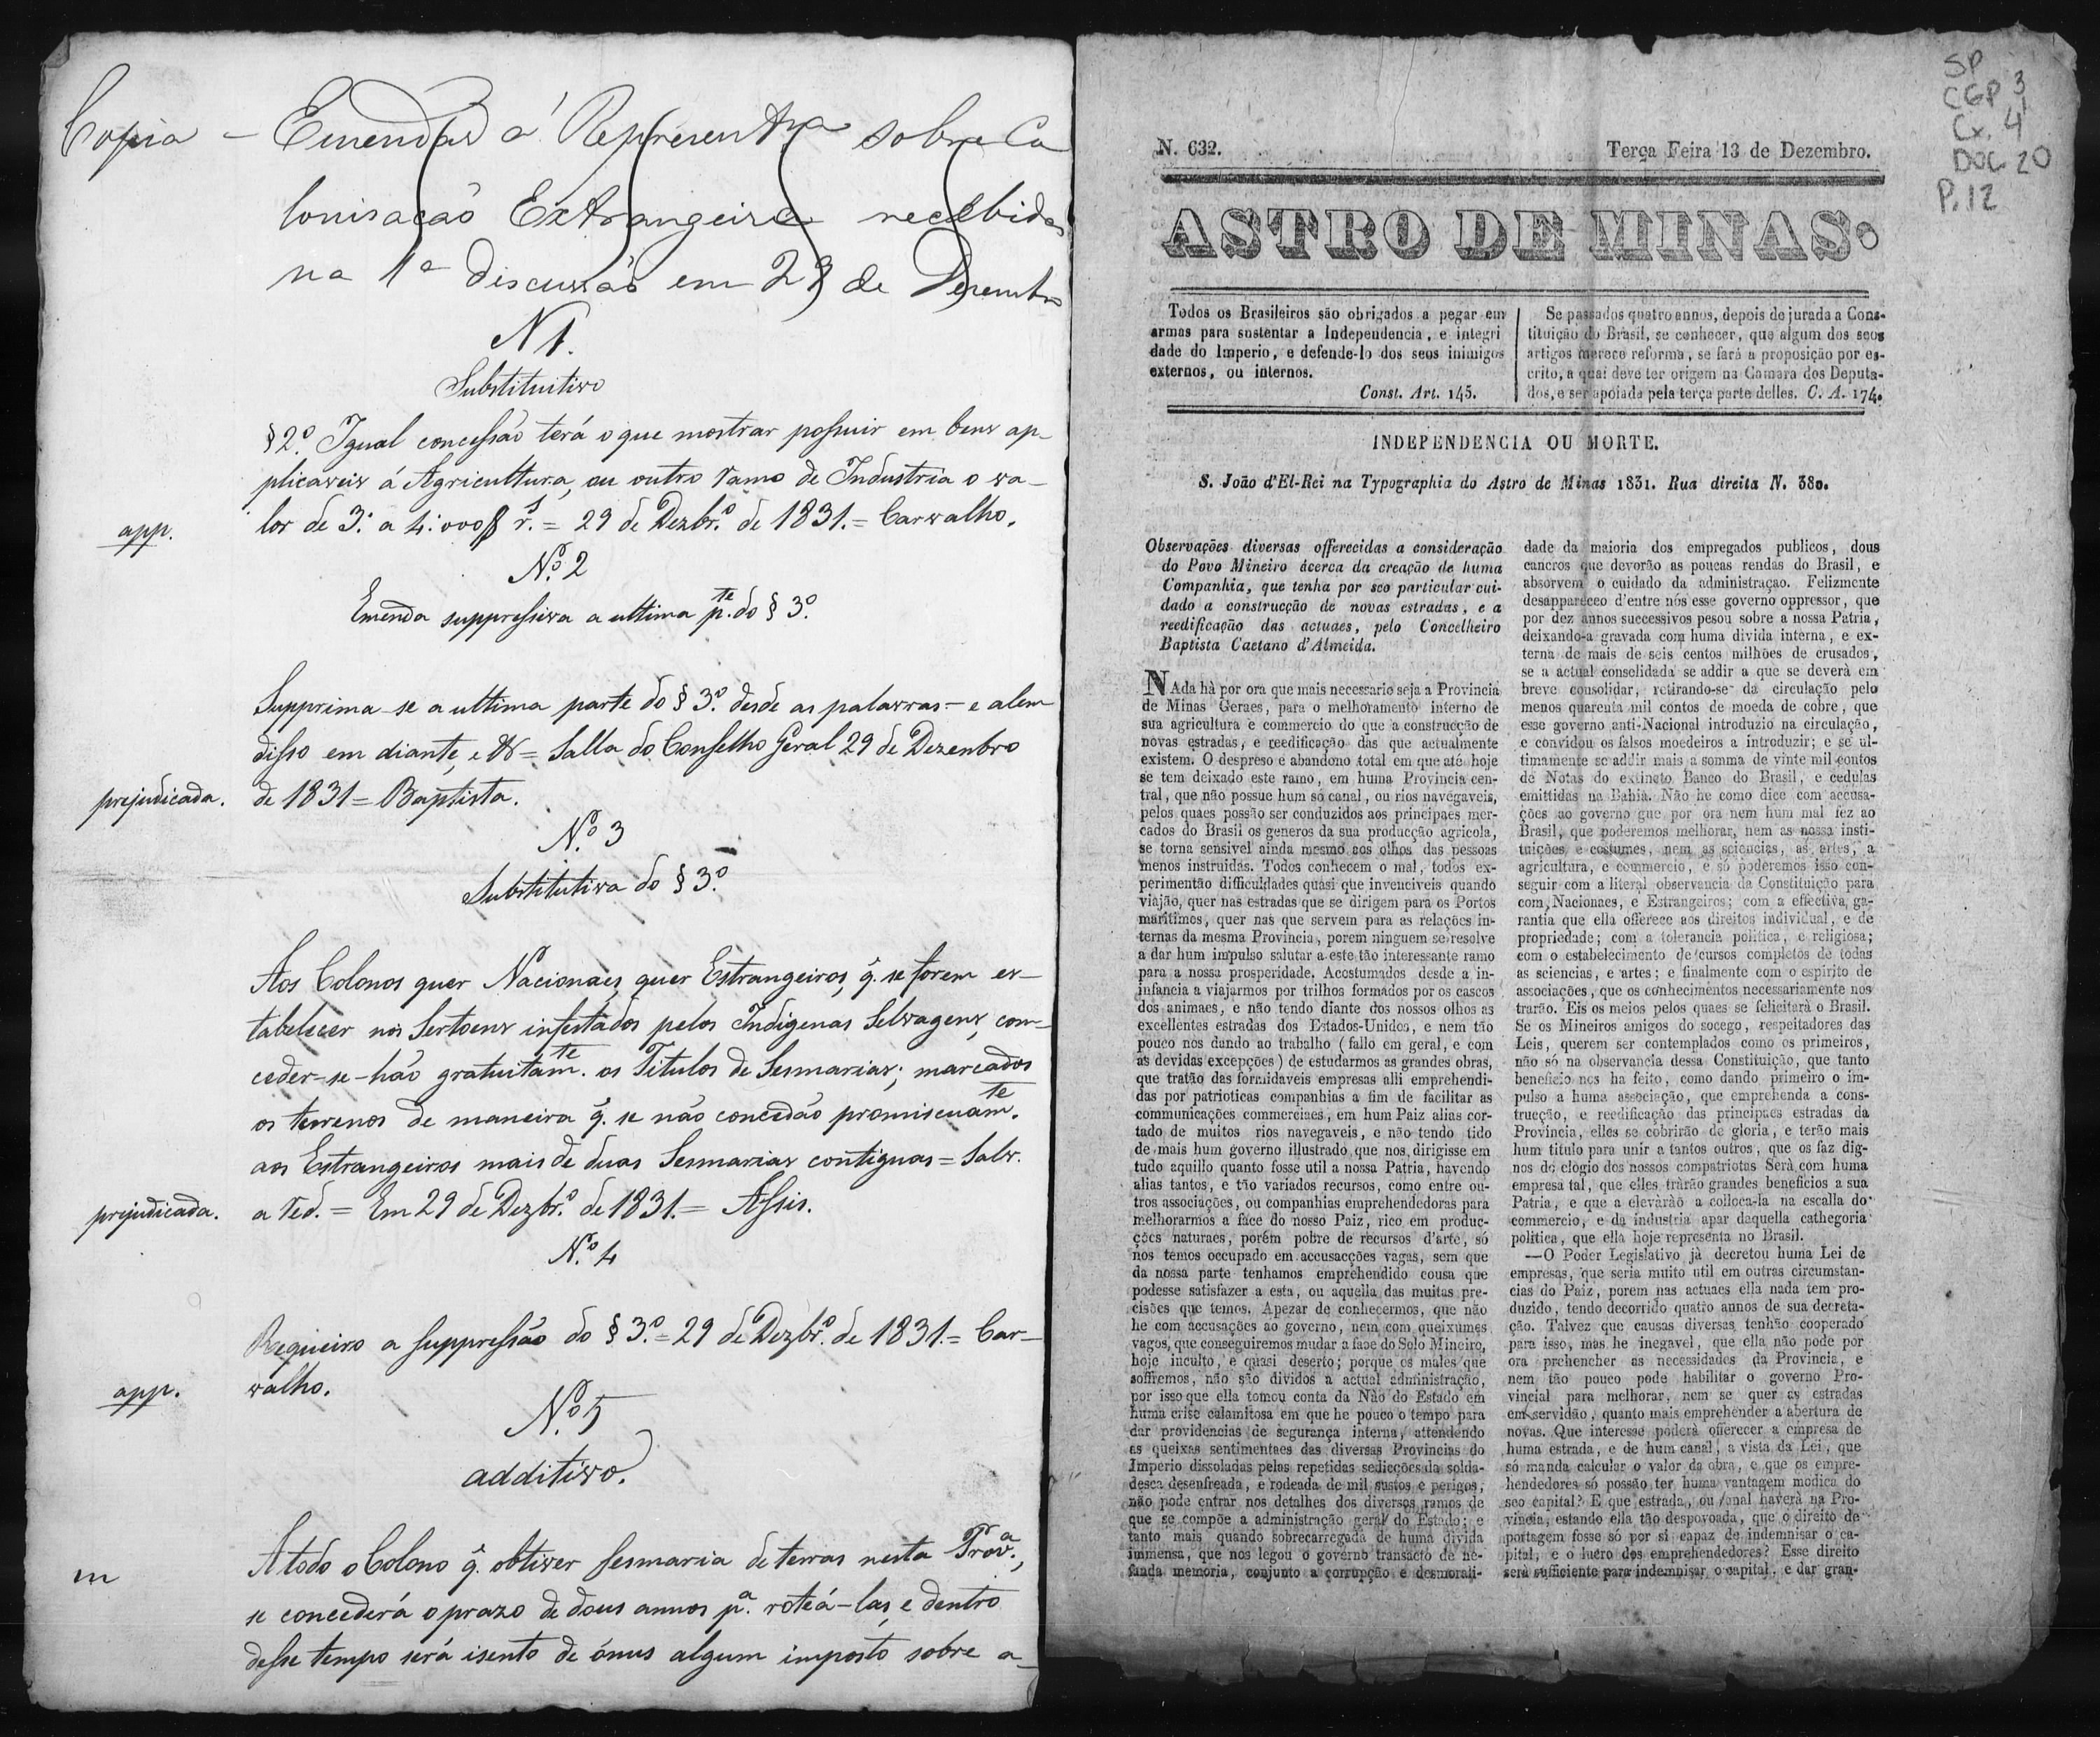 Copia - Emendas á Represent.ª sobre Co
lonisação Extrangeira recebidas
na 1ª discussão em 29 de Dezembro
N 1.
Substituitivo
§ 2.º Igual concessão terá o que mostrar possuir em bens ap-
plicaveis á Agricultura, ou outro ramo de Industria o va-
lor de 3: a 4:000$ r.s = 29 de Dezbr.º de 1831. = Carvalho.
app.
N.º 2
Emenda suppressiva a ultima p.te do § 3.º
Supprima-se a ultima parte do § 3.º desde as palavras - e alem
disso em diante, e = Salla do Conselho Geral 29 de Dezenbro
de 1831 = Baptista.
prejudicada.
N.º 3
Substitutiva do § 3.º
Aos Colonos quer Nacionaes, quer Estrangeiros, q̃. se forem es-
tabelecer nos Sertoens infestados pelos Indigenas Selvagens, con-
ceder-se-hão gratuitam.te os Titulos de Sesmarias; marcados
os terrenos de maneira q̃. se não concedão promiscuam.te
aos Estrangeiros mais de duas Sesmarias contiguas = Salv.
a red. = Em 29 de Dezbr.º de 1831. = Assis.
prejudicada.
N.º 4
Requeiro a suppressão do § 3.º = 29 de Dezbr.º de 1831. = Car-
valho.
app.
N.º 5
additivo.
A todo o Colono q̃. obtiver sesmaria de terras nesta Prov.ª,
se concederá o prazo de dous annos p.ª roteá-las, e dentro
desse tempo será isento de ónus algum imposto sobre a-
SP
CGP 3
Cx. 4
DOC 20
P. 12
N. 632. Terça Feira 13 de Dezembro.
ASTRO DE MINAS.
Todos os Brasileiros são obrigados a pegar em
armas para sustentar a Independencia, e integri
dade do Imperio, e defende-lo dos seos inimigos
externos, ou internos.
Const. Art. 145.
Se passados quatro annos, depois de jurada a Cons-
tituição do Brasil, se conhecer, que algum dos seos
artigos merece reforma, se fará a proposição por es-
crito, a qual deve ter origem na Camara dos Deputa-
dos, e ser apoiada pela terça parte delles. C. A. 174.
INDEPENDENCIA OU MORTE.
S. João d'El-Rei na Typographia do Astro de Minas 1831. Rua direita N. 380.
Observações diversas offerecidas a consideração
do Povo Mineiro ácerca da creação de huma
Companhia, que tenha por seo particular cui-
dado a construcção de novas estradas, e a
reedificação das actuaes, pelo Concelheiro
Baptista Caetano d'Almeida.
NAda hà por ora que mais necessario seja a Provincia
de Minas Geraes, para o melhoramento interno de
sua agricultura e commercio do que a construcção de
novas estradas, e reedificação das que actualmente
existem. O despreso e abandono total em que até hoje
se tem deixado este ramo, em huma Provincia cen-
tral, que não possue hum só canal, ou rios navegaveis,
pelos quaes possão ser conduzidos aos principaes mer-
cados do Brasil os generos da sua producção agricola,
se torna sensivel ainda mesmo aos olhos das pessoas
menos instruidas. Todos conhecem o mal, todos ex-
perimentão difficuldades quasi que invenciveis quando
viajão, quer nas estradas que se dirigem para os Portos
maritimos, quer nas que servem para as relações in-
ternas da mesma Provincia, porem ninguem se resolve
a dar hum impulso salutar a este tão interessante ramo
para a nossa prosperidade. Acostumados desde a in-
infancia a viajarmos por trilhos formados por os cascos
dos animaes, e não tendo diante dos nossos olhos as
excellentes estradas dos Estados-Unidos, e nem tão
pouco nos dando ao trabalho (fallo em geral, e com
as devidas excepções) de estudarmos as grandes obras,
que tratão das formidaveis empresas alli emprehendi-
das por patrioticas companhias a fim de facilitar as
communicações commerciaes, em hum Paiz alias cor-
tado de muitos rios navegaveis, e não tendo tido
de mais hum governo illustrado que nos dirigisse em
tudo aquillo quanto fosse util a nossa Patria, havendo
alias tantos, e tão variados recursos, como entre ou-
tros associações, ou companhias emprehendedoras para
melhorarmos a face do nosso Paiz, rico em produc-
ções naturaes, porém pobre de recursos d'arte, só
nos temos occupado em accusacções vagas, sem que
da nossa parte tenhamos emprehendido cousa que
podesse satisfazer a esta, ou aquella das muitas pre-
cisões que temos. Apezar de conhecermos, que não
he com accusações ao governo, nem com queixumes
vagos, que conseguiremos mudar a face do Solo Mineiro,
hoje inculto, e quasi deserto; porque os males que
soffremos, não são dividos a actual administração,
por isso que ella tomou conta da Náo do Estado em
huma crise calamitosa em que he pouco o tempo para
dar providencias de segurança interna, attendendo
as queixas sentimentaes das diversas Provincias do
Imperio dissoladas pelas repetidas sedicções da solda-
desca desenfreada, e rodeada de mil sustos e perigos,
não pode entrar nos detalhes dos diversos ramos de
que se compõe a administração geral do Estado; e
tanto mais quando sobrecarregada de huma divida
immensa, que nos legou o governo transacto de ne-
fanda memoria, conjunto a corrupção e desmorali-
dade da maioria dos empregados publicos, dous
cancros que devorão as poucas rendas do Brasil, e
absorvem o cuidado da administraçao. Felizmente
desappareceo d'entre nós esse governo oppressor, que
por dez annos successivos pesou sobre a nossa Patria,
deixando-a gravada com huma divida interna, e ex-
terna de mais de seis centos milhões de crusados,
se a actual consolidada se addir a que se deverà em
breve consolidar, retirando-se da circulação pelo
menos quarenta mil contos de moeda de cobre, que
esse governo anti-Nacional introduzio na circulação,
e convidou os falsos moedeiros a introduzir; e se ul-
timamente se addir mais a somma de vinte mil contos
de Notas do extincto Banco do Brasil, e cedulas
emittidas na Bahia. Não he como dice com accusa-
ções ao governo que por ora nem hum mal fez ao
Brasil, que poderemos melhorar, nem as nossa insti-
tuições, e costumes, nem as sciencias, as artes, a
agricultura, e commercio, e só poderemos isso con-
seguir com a literal observancia da Constituição para
com Nacionaes, e Estrangeiros; com a effectiva ga-
rantia que ella offerece aos direitos individual, e de
propriedade; com a tolerancia politica, e religiosa;
com o estabelecimento de cursos completos de todas
as sciencias, e artes; e finalmente com o espirito de
associações, que os conhecimentos necessariamente nos
trarão. Eis os meios pelos quaes se felicitarà o Brasil.
Se os Mineiros amigos do socego, respeitadores das
Leis, querem ser contemplados como os primeiros,
não só na observancia dessa Constituição, que tanto
beneficio nos ha feito, como dando primeiro o im-
pulso a huma associação, que emprehenda a cons-
trucção, e reedificação das principaes estradas da
Provincia, elles se cobrirão de gloria, e terão mais
hum titulo para unir a tantos outros, que os faz dig-
nos do elogio dos nossos compatriotas Serà com huma
empresa tal, que elles trarão grandes beneficios a sua
Patria, e que a elevaràõ a colloca-la na escalla do
commercio, e da industria apar daquella cathegoria
politica, que ella hoje representa no Brasil.
—O Poder Legislativo jà decretou huma Lei de
empresas, que seria muito util em outras circumstan-
cias do Paiz, porem nas actuaes ella nada tem pro-
duzido, tendo decorrido quatro annos de sua decreta-
ção. Talvez que causas diversas tenhão cooperado
para isso, mas he inegavel, que ella não pode por
ora prehencher as necessidades da Provincia, e
nem tão pouco pode habilitar o governo Pro-
vincial para melhorar, nem se quer as estradas
em servidão, quanto mais emprehender a abertura de
novas. Que interesse poderà offerecer a empresa de
huma estrada, e de hum canal, a vista da Lei, que
só manda calcular o valor da obra, e que os empre-
hendedores só possão ter huma vantagem modica do
seo capital? E que estrada, ou canal haverà na Pro-
vincia, estando ella tão despovoada, que o direito de
portagem fosse só por si capaz de indemnisar o ca-
pital, e o lucro dos emprehendedores? Esse direito
será sufficiente para indemnisar o capital, e dar gran-